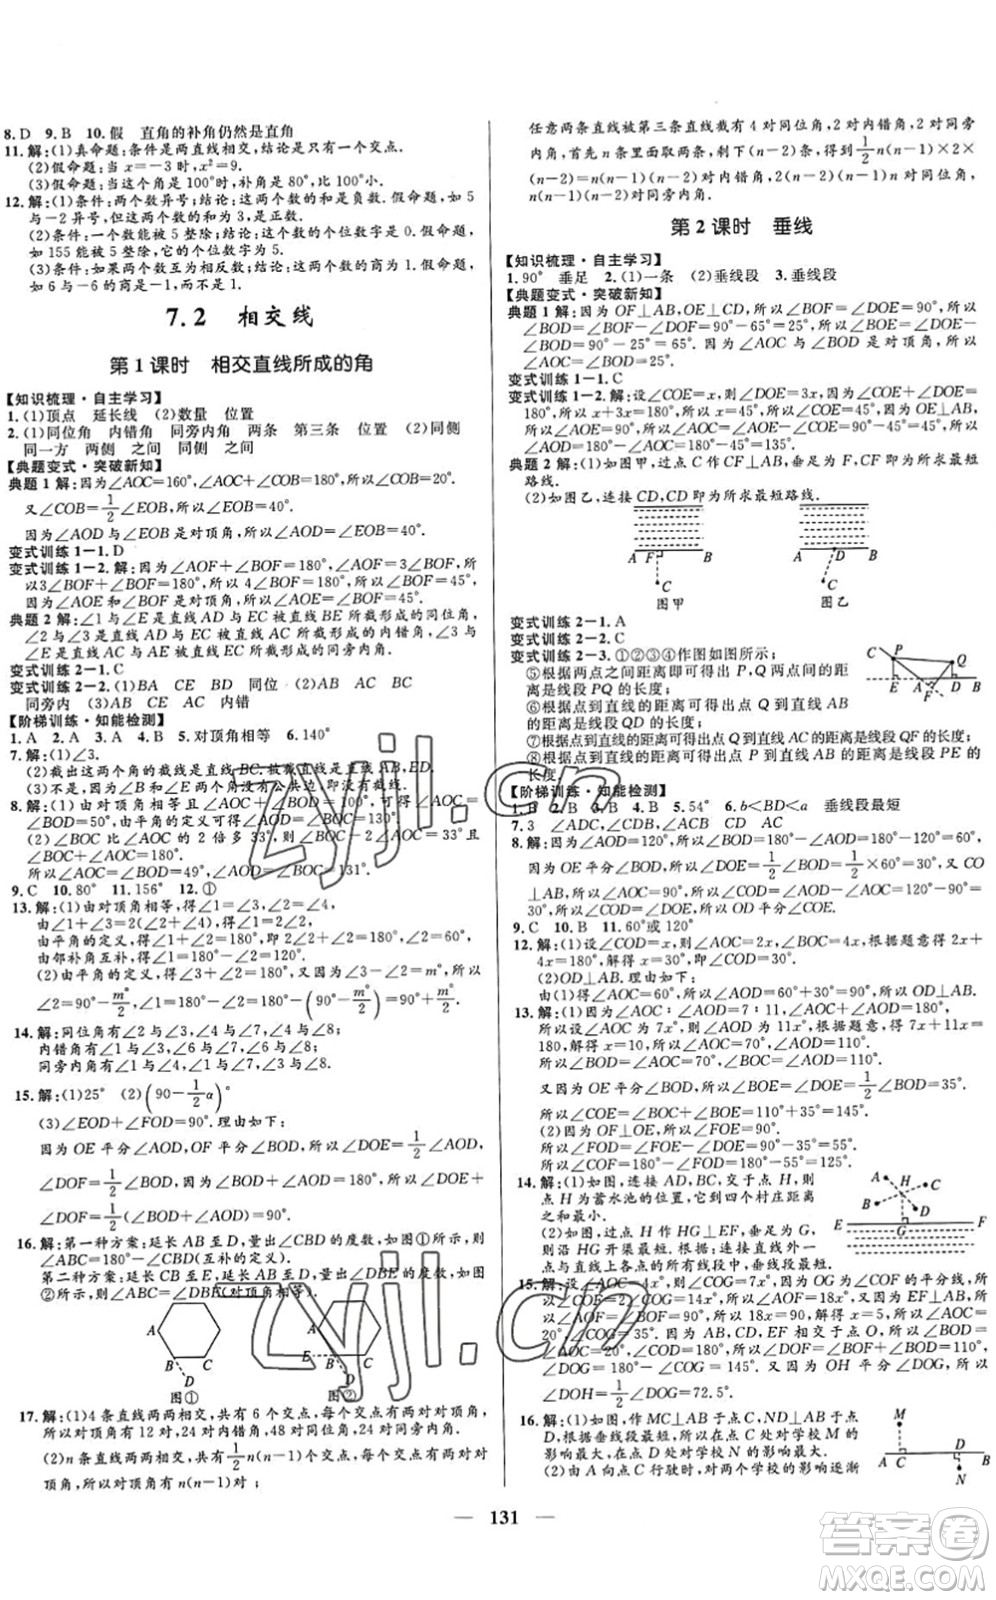 8. D  9. B  10. 假  直角的补角仍然是直角
11. 解:(1)真命题;条件是两直线相交,结论是只有一个交点.
(2)假命题;当 x=-3 时,x²=9.
(3)假命题;当这个角是 100°时,补角是 80°,100°比 80°大.
12. 解:(1)条件:两个数异号;结论:这两个数的和是负数.假命题,如 5 与-1 异号,但
(2)条件:一个数能被 5 整除;结论:这个数的个位数字是 0.假命题,如 155 能被 5 整除,它的个位数字是 5.
(3)条件:如果两个数互为相反数;结论:这两个数的商为-1.
如 6 与-6 的商是-1.
7.2  相交线
第 1 课时  相交直线所成的角
【知识梳理·自主学习】
1. (1)顶点  延长线  (2)数量  位置
2. (1)同位角  内错角  同旁内角  两条  第三条  位置  (2)同侧
同一方  两侧  之间  同侧  之间
【典题变式·突破新知】
典题 1 解:因为∠AOC=160°,∠AOC+∠COB=180°,所以∠COB=20°.
又∠COB=1/2∠EOB,所以∠EOB=40°.
因为∠AOD 与∠EOB 是对顶角,所以∠AOD=∠EOB=40°.
变式训练 1-1. D
变式训练 1-2. 解:因为∠AOF+∠BOF=180°,∠AOF=3∠BOF,所
以3∠BOF+∠BOF=180°,所以 4∠BOF=180°,所以∠BOF=45°,
因为∠AOE 和∠BOF 是对顶角,所以∠AOE=∠BOF=45°.
典题 2 解:∠1 与∠E 是直线 AD 与 EC 被直线 BE 所截形成的同位角,
∠2 与∠3 是直线 AD 与 EC 被 AC 所截形成的内错角,∠3 与
∠E 是 所截形成的同旁内角.
变式训练 2-1. C
变式训练 2-2. (1)BA  CE  BD  同位  (2)AD  BC  AC
同旁内  (3)AB  CE  AC  内错
【阶梯训练·知能检测】
1. A  2. A  3. A  4. B  5. 对顶角相等  6. 140°
7. 解:(1)∠3.
(2)截出这两个角的截线是直线 BC,被截直线是直线 AB,ED.
(3)不是.因为∠B 和∠E 的两边中没有公共边,即没有截线.
8. 解:(1)由对顶角相等得∠AOC=∠BOD,因为∠AOC+∠BOD=100°,所以∠AOC=∠BOD=50°,由平角的定义可得∠BOC=180°-∠AOC=130°.
(2)∠BOC 比∠AOC 的 2 倍多 33°,则∠BOC=2∠AOC+33°,
∠BOC+∠AOC=180°.
所以∠AOC=∠BOD=49°,∠BOC=131°.
9. C  10. 80°  11. 156°  12. ①
13. 解:(1)由对顶角相等,得∠1=∠3,因为∠1+∠3=∠2+∠4,
由∠1+∠3=2(∠2+∠4),得∠1=2∠2.
由平角的定义,得∠1+∠2=180°,即 2∠2+∠2=180°,∠2=60°,
由邻补角互补,得∠1=180°-∠2=180°-60°=120°.
(2)由平角的定义,得∠1+∠2=180°,因为∠1-∠2=m°,所以
∠2=90°-m°/2,∠4=∠2=90°-m°/2.
14. 解:同位角有∠2 与∠5,∠1 与∠7,∠4 与∠7,∠4 与∠9.
内错角有∠1 与∠5,∠2 与∠7,∠6 与∠8.
同旁内角有∠1 与∠6,∠1 与∠8.
15. 解:(1)25°  (2)(90-1/2α)°
(3)∠EOD+∠FOD=90°.理由如下:
因为 OE 平分∠AOD,OF 平分∠BOD,所以∠DOE=1/2∠AOD,
∠DOF=1/2∠BOD.又因为∠AOD+∠BOD=180°,所以∠DOE+
∠DOF=1/2(∠BOD+∠AOD)=90°.
16. 解:第一种方案:延长 AB,量出∠CBD 的度数,如图①所示,则
∠ABC=180°-∠CBD(互补的定义).
第二种方案:延长 CB 至 E,延长 AB 至 D,量出∠DBE 的度数,如图
②所示,则∠ABC=∠DBE(对顶角相等).
A  B  C  D  图①
A  E  B  C  D  图②
17. 解:(1)4 条直线两两相交,共有 6 个交点,每个交点有两对对顶角,
所以对顶角有 12 对,24 对内错角,48 对同位角,24 对同旁内角.
(2)n 条直线两两相交,共有1/2n(n-1)个交点,每个交点有两对对
顶角,所以对顶角有 n(n-1)对;
任意两条直线被第三条直线截有 4 对同位角,2 对内错角,2 对同旁
内角,首先 n 条里取两条,剩下(n-2)条,则得到1/2n(n-1)×2×
(n-2)=n(n-1)(n-2)对内错角,n(n-1)(n-2)对同旁内角.
第 2 课时  垂线
【知识梳理·自主学习】
1. 90°  垂足  2. (1)一条  (2)垂线段  3. 垂线段
【典题变式·突破新知】
典题 1 解:因为 OF⊥AB,OE⊥CD,所以∠BOF=∠DOE=90°,所以
∠BOD=∠DOE-∠BOE=90°-65°=25°,所以
∠AOC=∠BOD=25°.
变式训练 1-1. C
变式训练 1-2. 解:设∠COE=x°,则∠DOE=3x°,因为∠COE+∠DOE=
180°,所以 x+3x=180°,所以 x=45°,所以∠COE=45°.因为 OE⊥AB,所以
∠AOD=180°-∠AOC=180°-45°=135°.
典题 2 解:(1)如图甲,过点 C 作 CF⊥AB,垂足为 F,CF 即为所求最短
路线.
(2)如图乙,连接 CD,CD 即为所求最短路线.
A  F  B  C  图甲
A  D  B  C  图乙
变式训练 2-1. A
变式训练 2-2. C
变式训练 2-3. ①②③④作图如图所示;
⑤根据两点之间距离可得出 P,Q 两点间的距
离是线段 PQ 的长度;
⑥根据点到直线的距离可得出点 Q 到直线 AB 的距离是
线段 QD 的长度;
⑦根据点到直线的距离可得出点 Q 到直线 的距离是线段 QF 的长度;
⑧根据点到直线的距离可得出点 P 到直线 AB 的距离是线段 PE 的
长度.
C  P  Q  A  E  F  D  B
【阶梯训练·知能检测】
1. B  2. B  3. B  4. B  5. 54°  6. b<BD<a  垂线段最短
7. 3  ∠ADC,∠CDB,∠ACB  DC  AC
8. 解:因为∠AOD=120°,所以∠BOD=180°-∠AOD=180°-120°=60°,
因为 OE 平分∠BOD,所以∠DOE=1/2∠BOD=1/2×60°=30°,又 CO
⊥AB,所以∠COB=90°,所以∠COD=∠COB-∠BOD=90°-60°=
30°,所以∠COD=∠DOE=30°.
9. C  10. B  11. 60°或 120°
12. 解:(1)设∠COD=x,则∠AOC=2x,∠BOC=4x,根据题意得 2x+
4x=180°,解得 x=30°,即∠COD=30°.
(2)OD⊥AB.理由如下:
由(1)得∠AOC=60°,所以∠AOD=∠AOC+∠COD=90°,所以 OD⊥AB.
13. 解:(1)因为∠AOC∶∠AOD=7∶11,
所以设∠AOC 为 7x°,则∠AOD 为 11x°,根据题意,得 7x+11x=
180,解得 x=10,所以∠AOC=70°,∠AOD=110°.
所以∠BOD=∠AOC=70°,∠BOC=∠AOD=110°.
又因为 OE 平分∠BOD,所以∠BOE=∠DOE=1/2∠BOD=35°.
所以∠COE=∠BOC+∠BOE=110°+35°=145°.
(2)因为 OF⊥OE,所以∠FOE=90°.
所以∠FOD=∠FOE-∠DOE=90°-35°=55°.
所以∠COF=180°-∠FOD=180°-55°=125°.
14. 解:(1)如图,连接 AD,BC,交于点 H,则
点 H 为蓄水池的位置,它到四个村庄距离
之和最小.
(2)如图,过点 H 作 HG⊥EF,垂足为 G,
则沿 HG 开渠最短.根据:连接直线外一点
与直线上各点的所有线段中,垂线段最短.
A  H  C  B  D  E  G  F
15. 解:设∠AOC=4x°,则∠COG=7x°,因为 OG 为∠COF 的平分线,所
以∠COF=2∠COG=14x°,所以∠AOF=18x°,又因为 EF⊥AB,所以
∠AOF=90°,即 18x=90,解得 x=5,所以
∠AOC=20°,∠COG=35°,所以∠DOG=180°-∠COG=180°-35°=145°.又因为 OH 平分∠DOG,所以
∠DOH=1/2∠DOG=72.5°.
16. 解:(1)如图,作 MC⊥AB 于点 C,ND⊥AB
于点 D,所以在点 C 处对学校 M 的
影响最大,在点 D 处对学校 N 的影响最大.
(2)由点 A 向点 C 行驶时,对两个学校的影响逐渐
M  A  C  D  B  N
— 131 —
zyjl.cn
zyjl.cn
答案圈
MXQE.COM